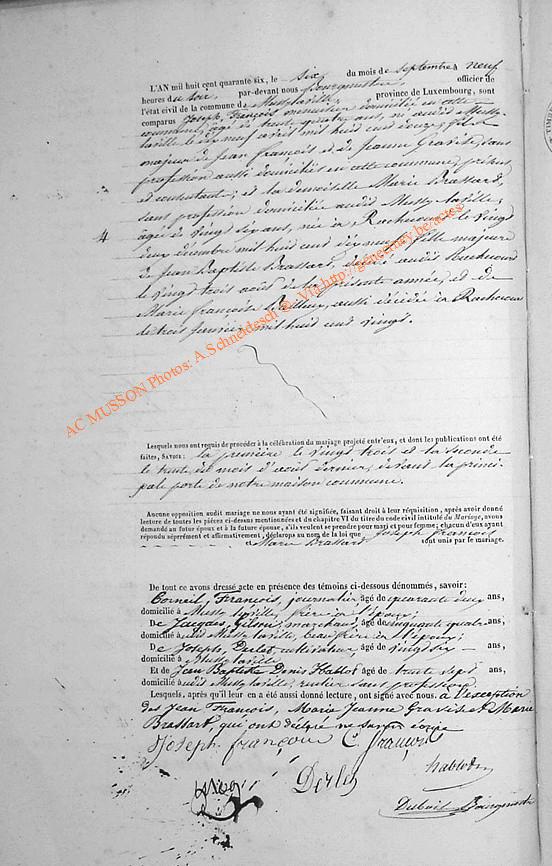 L'AN mil huit cent quarante six, le six du mois de septembre à neuf
heures du soir, par-devant nous Bourgmestre officier de
l'état civil de la commune de Mussy-la-ville, province de Luxembourg, sont
comparus Joseph François menuisier domicilié en cette
commune, âgé de trente quatre ans, né audit Mussy-
laville le dix neuf avril mil huit cent douze, fils
majeur de Jean François et de Jeanne Gravisse, sans
profession aussi domiciliés en cette commune, présens
et consentants; et la demoiselle Marie Brassart,
sans profession domiciliée audit Mussy laville,
4
âgée de vingt six ans, née à Rachecourt le vingt
deux décembre mil huit cent dix neuf, fille majeure
de Jean Baptiste Brassart, décédé audit Rachecourt
le vingt trois août de la présente année, et de
Marie Françoise, aussi décédée à Rachecourt
le trois janvier mil huit cent vingt.
AC MUSSON Photos: A.Schneidesch ©. Via http://geneemay.be/actes
Lesquels nous ont requis de procéder à la célébration du mariage projeté entr'eux, et dont les publications ont été
faites, SAVOIR: la première le vingt trois et la seconde
le trente du mois d'août dernier, devant la princi-
pale porte de notre maison commune.
Aucune opposition audit mariage ne nous ayant été signifiée, faisant droit à leur réquisition, après avoir donné
lecture de toutes les pièces ci-dessus mentionnées et du chapitre VI du titre du code civil intitulé du Mariage, avons
demandé au futur époux et à la future épouse, s'ils veulent se prendre pour mari et pour femme; chacun d'eux ayant
répondu séparément et affirmativement, déclarons au nom de la loi que Joseph François
et Marie Brassart sont unis par le mariage.
De tout ce avons dressé acte en présence des témoins ci-dessous dénommés, savoir:
Corneil François, journalier âgé de quarante deux ans,
domicilié à Mussy laville, frère à l'époux;
De Jacques Gilson, marchand, âgé de cinquante quatre ans,
domicilié audit Mussy laville, beau frère à l'époux;
De Joseph Derlet, cultivateur âgé de vingt six ans,
domicilié à Mussy laville
Et de Jean Baptiste Denis Hablot âgé de trente sept ans,
domicilié audit Mussy laville, rentier sans profession.
Lesquels, après qu'il leur en a été aussi donné lecture, ont signé avec nous. à l'exception
des Jean François, Marie Jeanne Gravisse et Marie
Brassart, qui ont déclaré ne savoir écrire
Joseph françois C. françois
hablot
Derlet
Dubois Bourgmestre